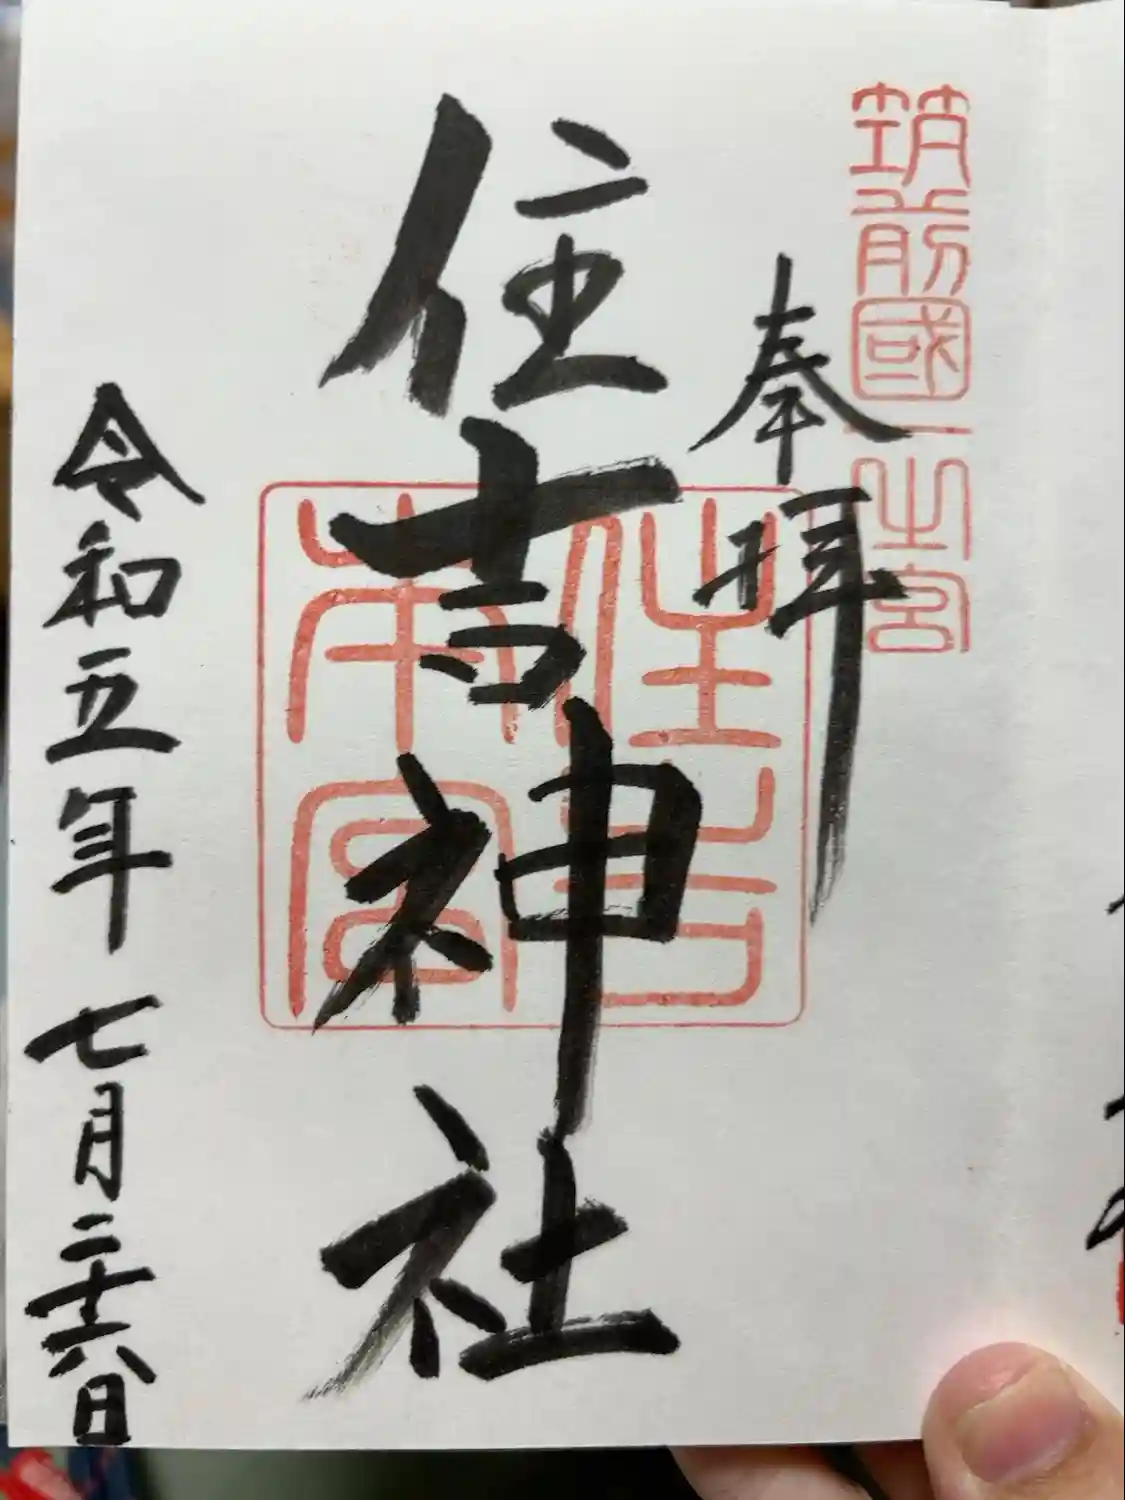 筑前國一之宮
奉拝
住吉本宮
住吉神社
令和五年七月二十六日